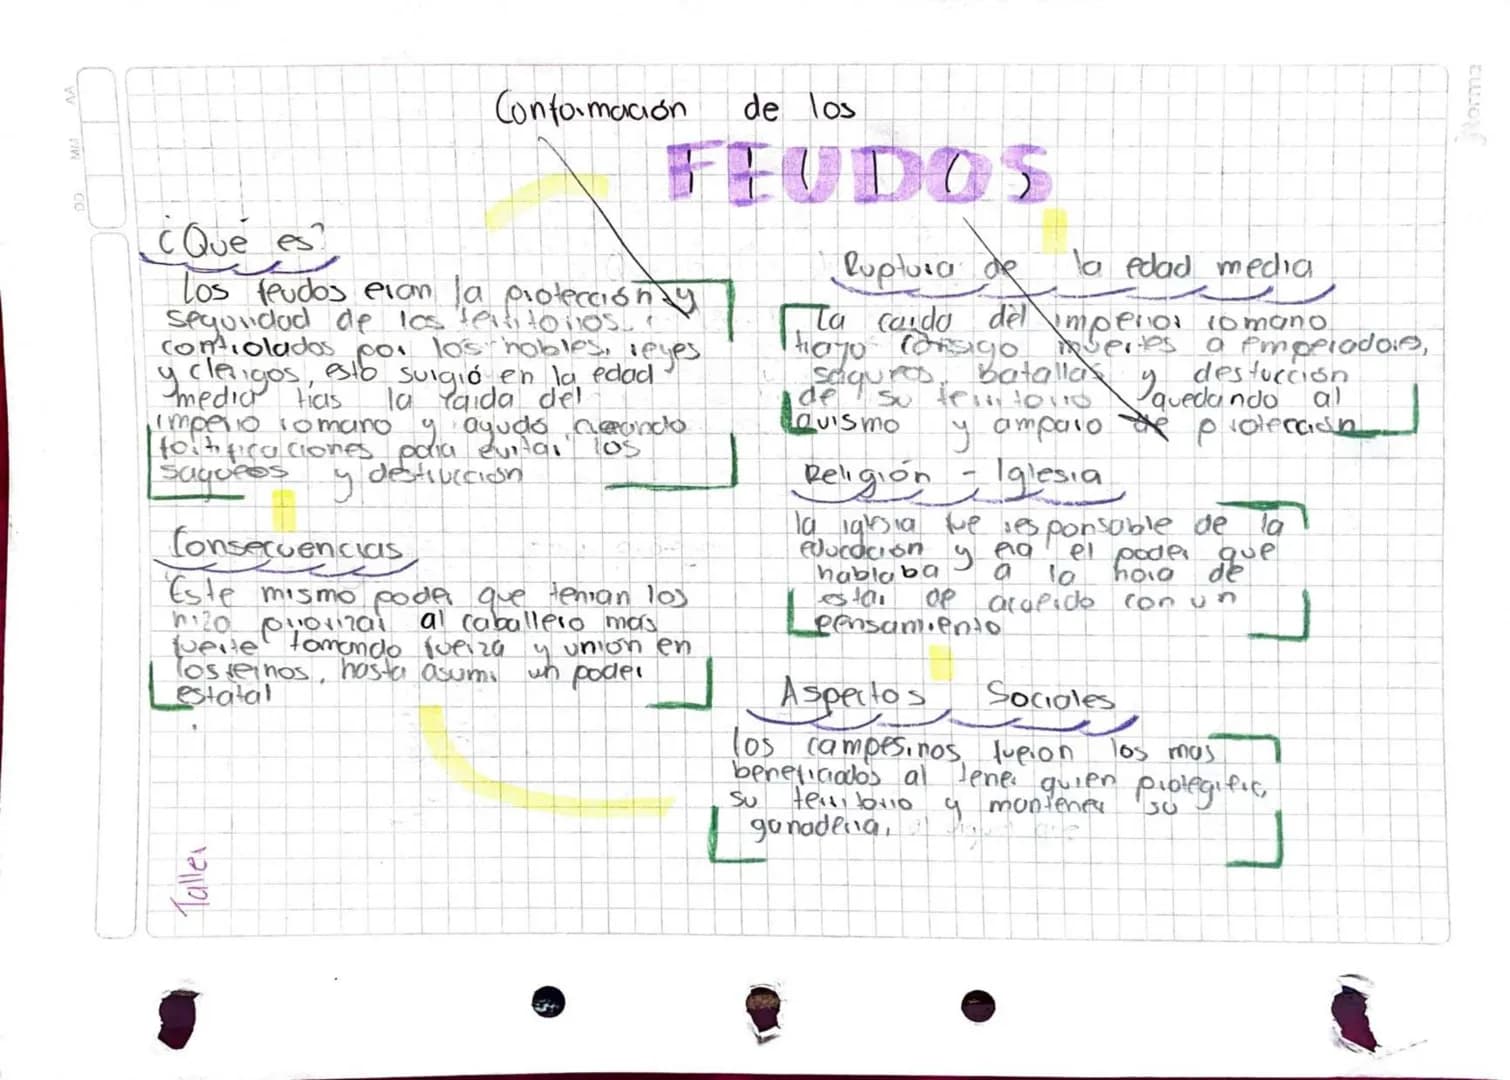 Conformación de los
FEUDOS
¿Qué es?
Los feudos eran la protección y
seguridad de los territorios
controlados por los nobles, reyes
y clerigos, esto surgió en la edad
media tras la caida del
imperio romano y ayudó creando
fortificaciones podia evitar los
saqueos y destrucción
Consecuencias
Este mismo poder que tenian los
hizo priorizar al caballero mas
fuerte tomando fuerza y union en
los reinos, hasta asumi un poder
estatal
Taller
Ruptura de la edad media
La caida del imperior romano
trajo consigo muertes a emperadores,
saqueos, batallas y destucción
de su territorio quedando al
quismo y amparo de protección
Religión - Iglesia
la iglesia fue responsable de la
educación y era el poder que
hablaba a la hora de
estar de acuerdo con un
pensamiento
Aspectos Sociales
los campesinos fueron los mas
beneficiados al tener quien
su territorio y mantener su
ganaderia,
JNorma
AA
MM
DD